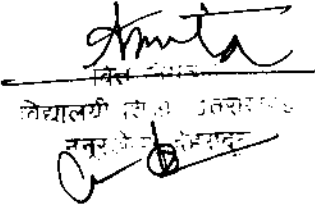 Amrita
वित्त
विद्यालयी शिक्षा उत्तराखण्ड
ननूरखेड़ा देहरादून